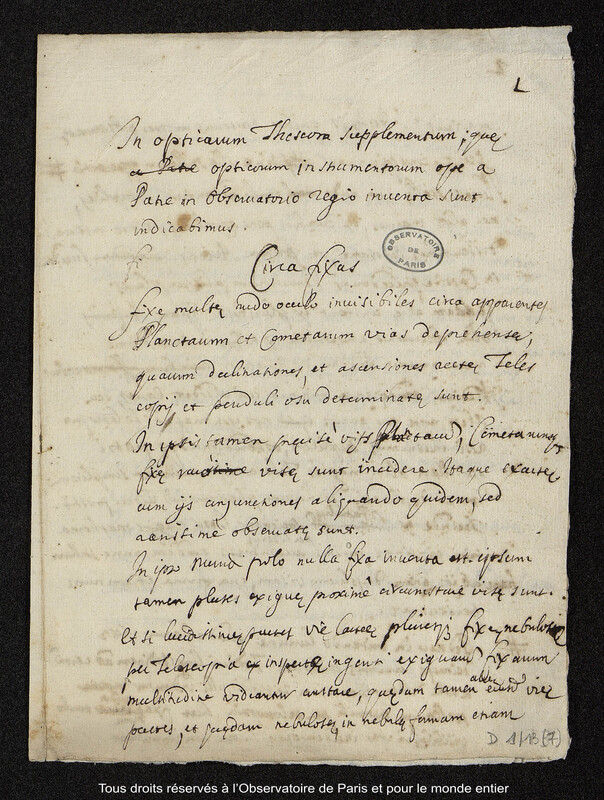 L
In opticarum Theseora supplementum, quę
a Patre opticorum instrumentorum ope a
Patre in Observatorio regio inventa sunt
indicabimus.
OBSERVATOIRE
DE
PARIS
Circa fixas
fixę multę nudo oculo invisibiles circa apparentes
Planetarum et Cometarum vias deprehensę,
quarum declinationes, et ascensiones rectę Teles
copij et penduli usu determinatę sunt.
In ipsis tamen pręcisè vijs Cometarumq
fixę visę sunt incedere. Itaque exactę
cum ijs conjunctiones aliquando quidem, sed
rarissimę observatę sunt.
In ipso mundi polo nulla fixa inventa est. ipsum
tamen plures exiguę proximè circumstare visę sunt.
Et si lucidissimę partes vię lacteę pluresq fixę nebulosę
per Telescopia inspectę ingenti exiguarum fixarum
multitudine videantur constare, quędam tamen eiusd vię
partes, et quędam nebulosę, in nebulę formam etiam
D 1/13 (7)
Tous droits réservés à l'Observatoire de Paris et pour le monde entier